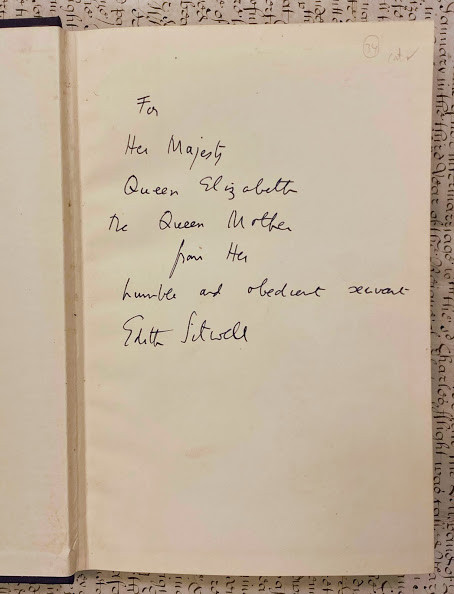 For
Her Majesty
Queen Elizabeth
the Queen Mother
from Her
humble and obedient servant
Edith Sitwell